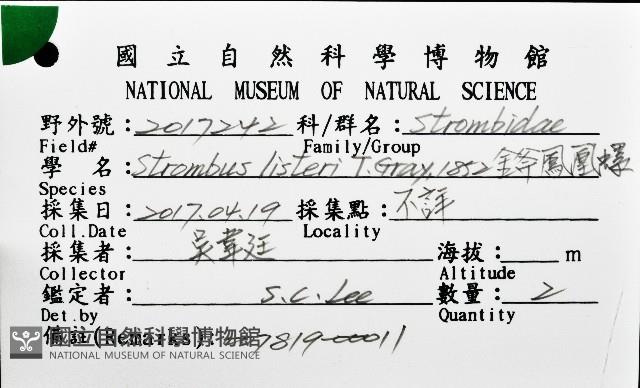 國立自然科學博物館
NATIONAL MUSEUM OF NATURAL SCIENCE
野外號：2017242 科/群名：Strombidae
Field# Family/Group
學 名：Strombus listeri T.Gray,1852 鳳凰螺
Species
採集日：2017.04.19 採集點：不詳
Coll.Date Locality
採集者：吳韋廷 海拔： m
Collector Altitude
鑑定者：S.C.Lee 數量：2
Det.by Quantity
備註(Remarks)：7819-00011
國立自然科學博物館
NATIONAL MUSEUM OF NATURAL SCIENCE